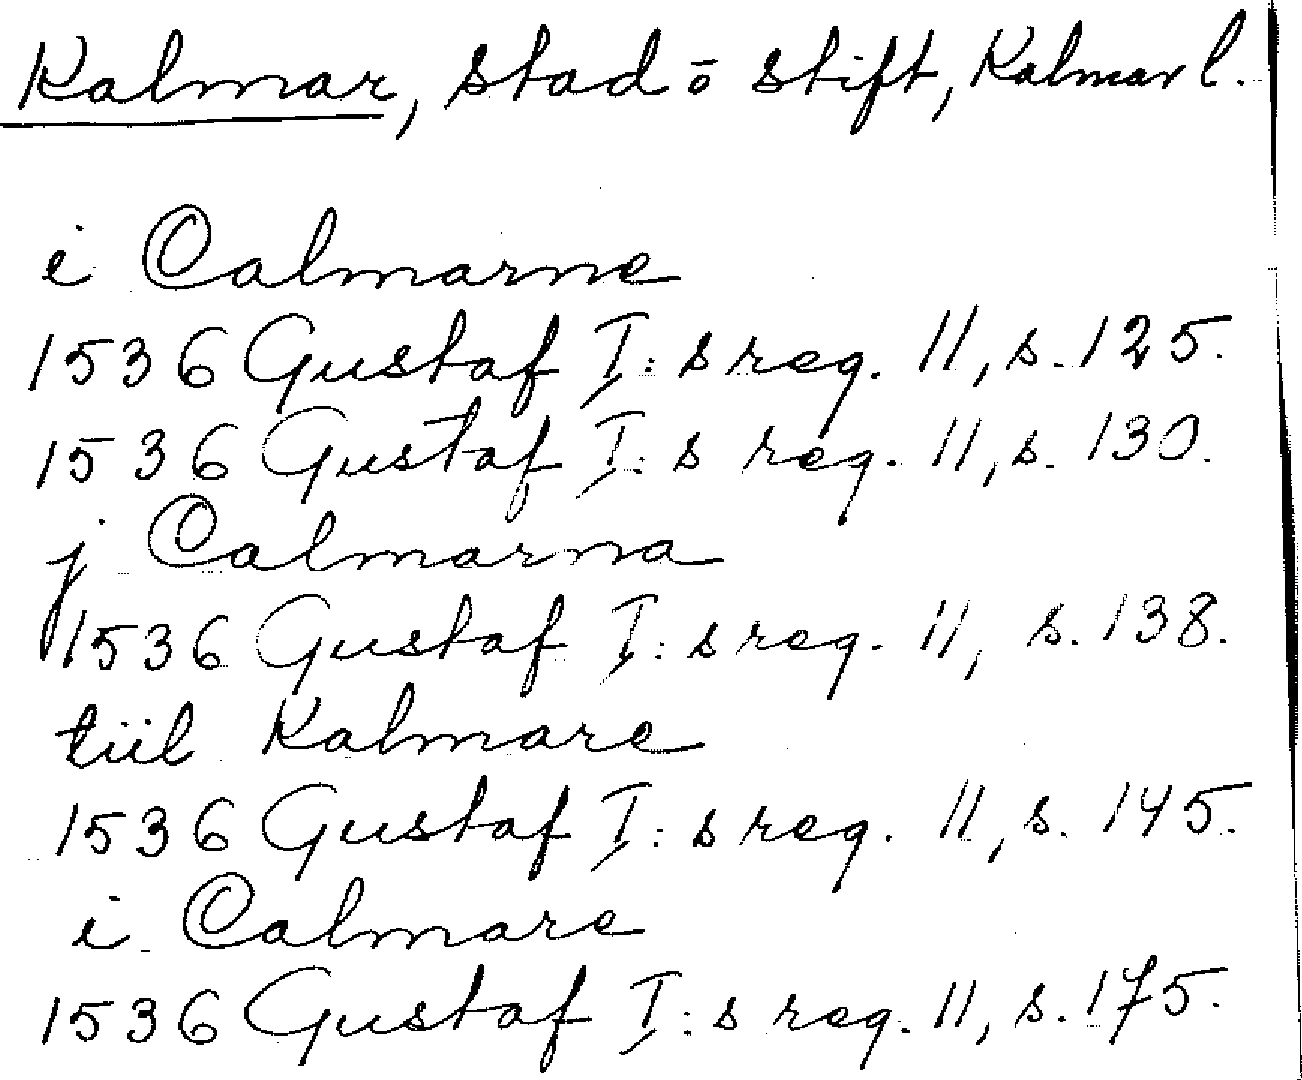 Kalmar, stad o stift, Kalmar l.
i Calmarne
1536 Gustaf I:s reg. 11, s. 125.
1536 Gustaf I:s reg. 11, s. 130.
j Calmarna
1536 Gustaf I:s reg. 11, s. 138.
tiil Kalmare
1536 Gustaf I:s reg. 11, s. 145.
i Calmare
1536 Gustaf I:s reg. 11, s. 175.